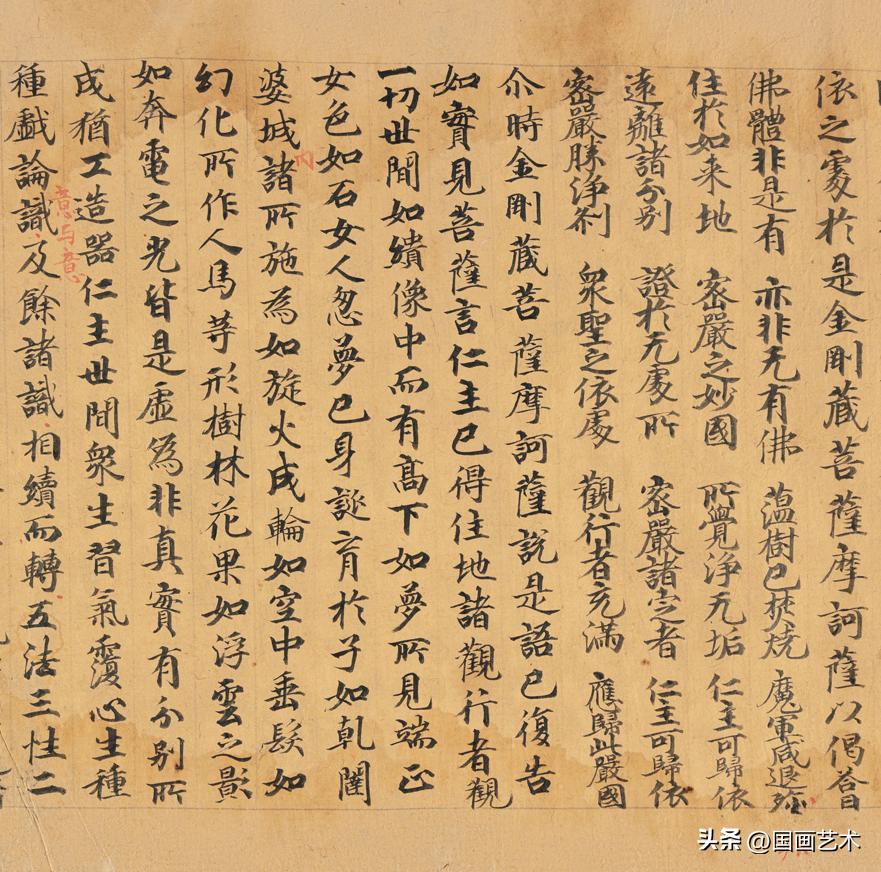 依之處於是金剛藏菩薩摩訶薩以偈答曰
佛體非是有 亦非无有佛 薀樹已焚燒 魔軍咸退殄
住於如来地 密嚴之妙國 所覺淨无垢 仁主可歸依
遠離諸分别 證於无處所 密嚴諸定者 仁主可歸依
密嚴勝淨刹 衆聖之依處 觀行者充滿 應歸此嚴國
尒時金剛藏菩薩摩訶薩說是語已復告
如實見菩薩言仁主已得住地諸觀行者觀
一切世間如繢像中而有髙下如夢所見端正
女色如石女人忽夢已身誕育於子如乹闥
婆城諸所施為如旋火成輪如空中垂髮如
内
幻化所作人馬等形樹林花果如浮雲之影
如奔電之光皆是虚為非真實有分别所
成猶工造器仁主世間衆生習氣覆心生種
意与意
種戲論識及餘諸識相續而轉五法三性二
头条 @国画艺术